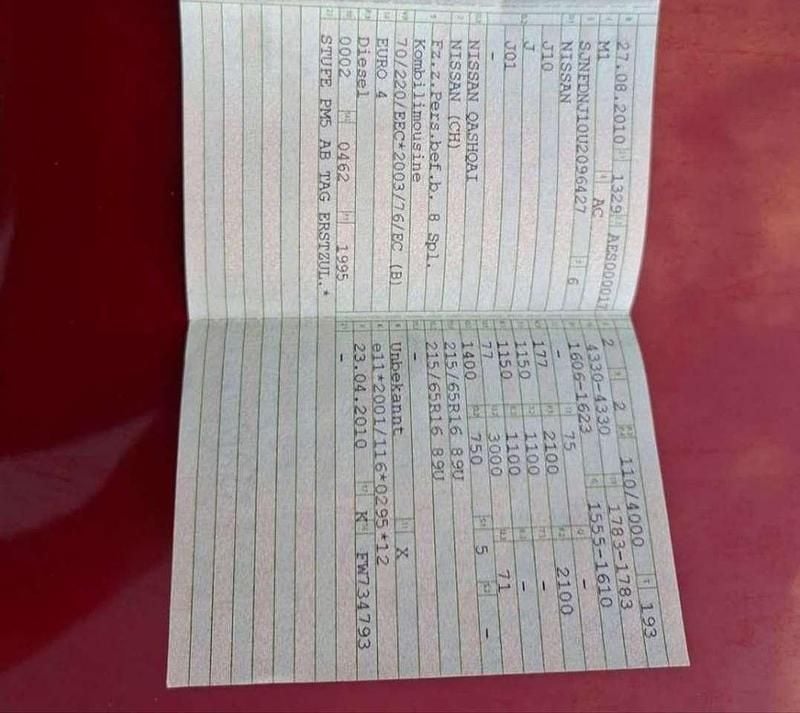 27.08.2010 1329 AES000017
M1 AC
SJNFDNJ10U2096427 6
NISSAN
J10
J
J01
-
NISSAN QASHQAI
NISSAN (CH)
Fz.z.Pers.bef.b. 8 Spl.
Kombilimousine
70/220/EEC*2003/76/EC (B)
EURO 4
Diesel
0002 0462 1995
STUFE PM5 AB TAG ERSTZUL.*
2 2 110/4000 193
4330-4330 1783-1783
1606-1623 1555-1610
- 75 -
177 2100 2100
1150 1100 -
1150 1100 -
77 3000 71
1400 750 5 -
215/65R16 89U
215/65R16 89U
-
Unbekannt X
e11*2001/116*0295*12
23.04.2010 K FW734793
-